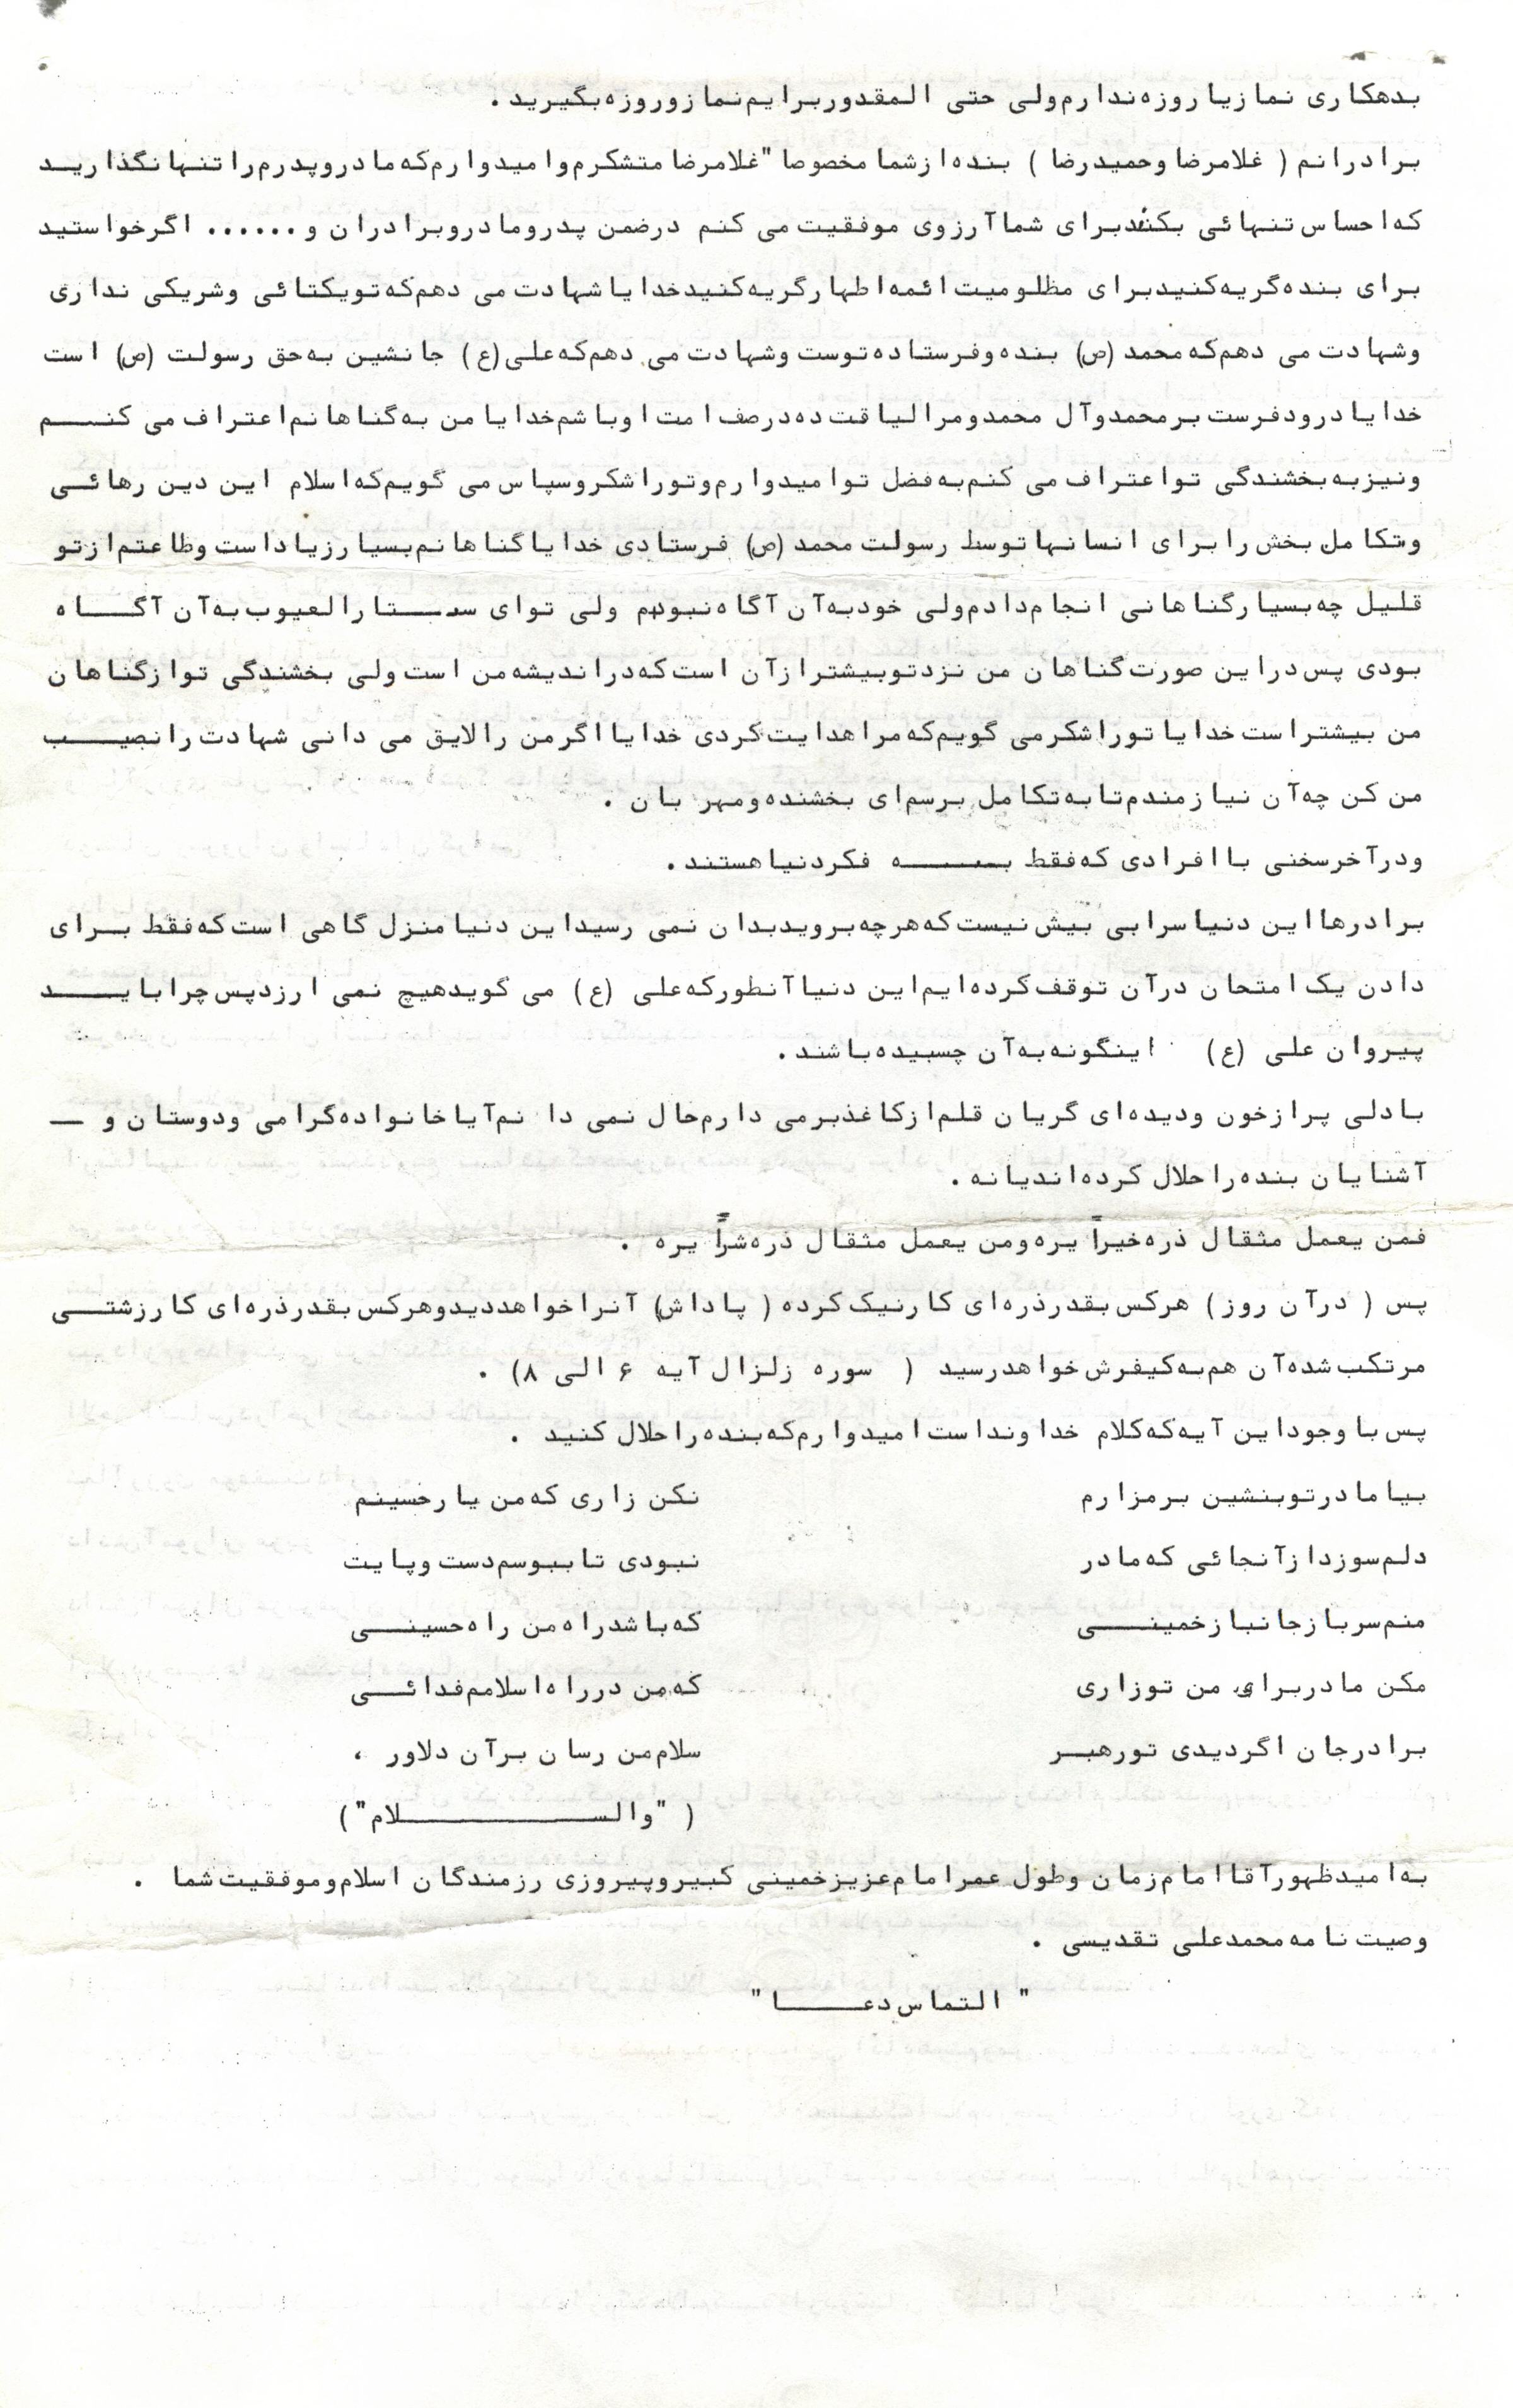 بدهکاری نماز یا روزه ندارم ولی حتی المقدور برایم نماز و روزه بگیرید .
برادرانم ( غلامرضا و حمیدرضا ) بنده از شما مخصوصا "غلامرضا متشکرم و امیدوارم که مادر و پدرم را تنها نگذارید
که احساس تنهائی بکنند برای شما آرزوی موفقیت می کنم درضمن پدر و مادر و برادران و ...... اگر خواستید
برای بنده گریه کنید برای مظلومیت ائمه اطهار گریه کنید خدایا شهادت می دهم که تو یکتائی و شریکی نداری
و شهادت می دهم که محمد (ص) بنده و فرستاده توست و شهادت می دهم که علی (ع) جانشین به حق رسولت (ص) است
خدایا درود فرست بر محمد و آل محمد و مرا لیاقت ده در صف امت او باشم خدایا من به گناهانم اعتراف می کنم
و نیز به بخشندگی تو اعتراف می کنم به فضل تو امیدوارم و تو را شکر و سپاس می گویم که اسلام این دین رهائی
و تکامل بخش را برای انسانها توسط رسولت محمد (ص) فرستادی خدایا گناهانم بسیار زیاد است و طاعتم از تو
قلیل چه بسیار گناهانی انجام دادم ولی خود به آن آگاه نبودم ولی تو ای ستار العیوب به آن آگاه
بودی پس در این صورت گناهان من نزد تو بیشتر از آن است که در اندیشه من است ولی بخشندگی تو از گناهان
من بیشتر است خدایا تو را شکر می گویم که مرا هدایت کردی خدایا اگر من را لایق می دانی شهادت را نصیب
من کن چه آن نیازمندم تا به تکامل برسم ای بخشنده و مهر بان .
و در آخر سخنی با افرادی که فقط به فکر دنیا هستند .
برادرها این دنیا سرابی بیش نیست که هر چه بروید بدان نمی رسید این دنیا منزل گاهی است که فقط برای
دادن یک امتحان در آن توقف کرده ایم این دنیا آنطور که علی (ع) می گوید هیچ نمی ارزد پس چرا باید
پیروان علی (ع) اینگونه به آن چسبیده باشند .
با دلی پر از خون و دیده ای گریان قلم از کاغذ بر می دارم حال نمی دانم آیا خانواده گرامی و دوستان و —
آشنایان بنده را حلال کرده اند یا نه .
فمن یعمل مثقال ذره خیراً یره و من یعمل مثقال ذره شراً یره .
پس ( در آن روز ) هر کس بقدر ذره ای کار نیک کرده ( پاداش ) آنرا خواهد دید و هر کس بقدر ذره ای کار زشتی
مرتکب شده آن هم به کیفرش خواهد رسید ( سوره زلزال آیه ۶ الی ۸ ) .
پس با وجود این آیه که کلام خداوند است امیدوارم که بنده را حلال کنید .
بیا مادر تو بنشین بر مزارم نکن زاری که من یار حسینم
دلم سوزد از آنجائی که مادر نبودی تا ببوسم دست و پایت
منم سرباز جانباز خمینی که باشد راه من راه حسینی
مکن مادر برای من تو زاری که من در راه اسلامم فدائی
برادر جان اگر دیدی تو رهبر سلام من رسان بر آن دلاور ،
( "والسلام" )
به امید ظهور آقا امام زمان و طول عمر امام عزیز خمینی کبیر و پیروزی رزمندگان اسلام و موفقیت شما .
وصیت نامه محمدعلی تقدیسی .
" التماس دعا "